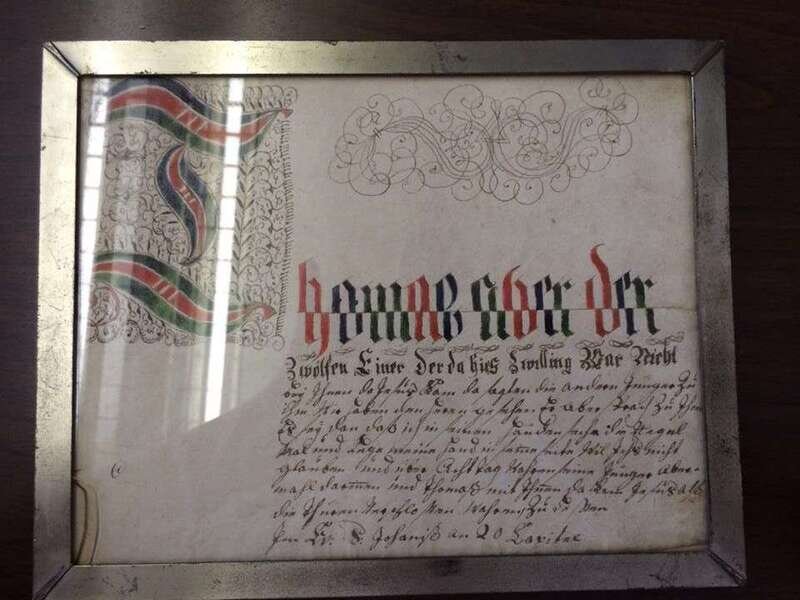 Thomas aber der
Zwölfen Einer Der da hies Zwilling War Nicht
bey Ihnen da Jesus Kam da sagten die andern Jünger Zu
ihm Wir haben den Herrn gesehen Er aber sprach Zu Ihnen
Es sey dan daß ich in seinen Händen sehe die Negel
Mal und lege meine hand in seine seite Wil Ichs nicht
glauben Und uber Acht Tag Wahren seine Jünger Aber-
mahl darinnen und Thomas mit Ihnen da Kam Jesus als
die Thüren Verschlossen Wahren
Ev. S. Johaniß an 20 Capitel